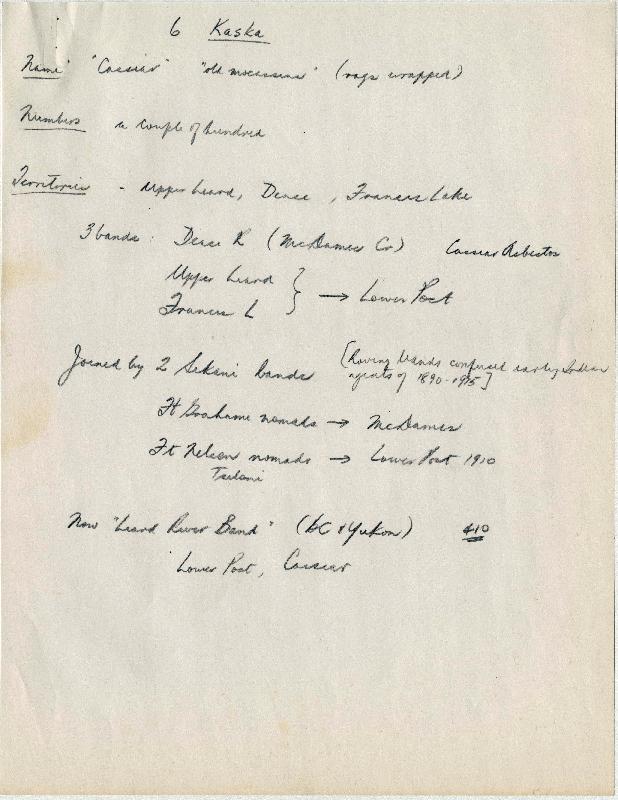 6 Kaska
Name "Cassiar" "old moccassins" (rags wrapped)
Numbers a couple of hundred
Territories - Upper Liard, Dease, Frances Lake
3 bands: Dease R (McDames Cr) Cassiar Asbestos
Upper Liard
Frances L } → Lower Post
Joined by 2 Sekani bands [Roving bands confused early Indian
agents of 1890-1915]
Ft Grahame nomads → McDames
Ft Nelson nomads → Lower Post 1910
Now "Liard River Band" (BC & Yukon) 410
Lower Post, Cassiar